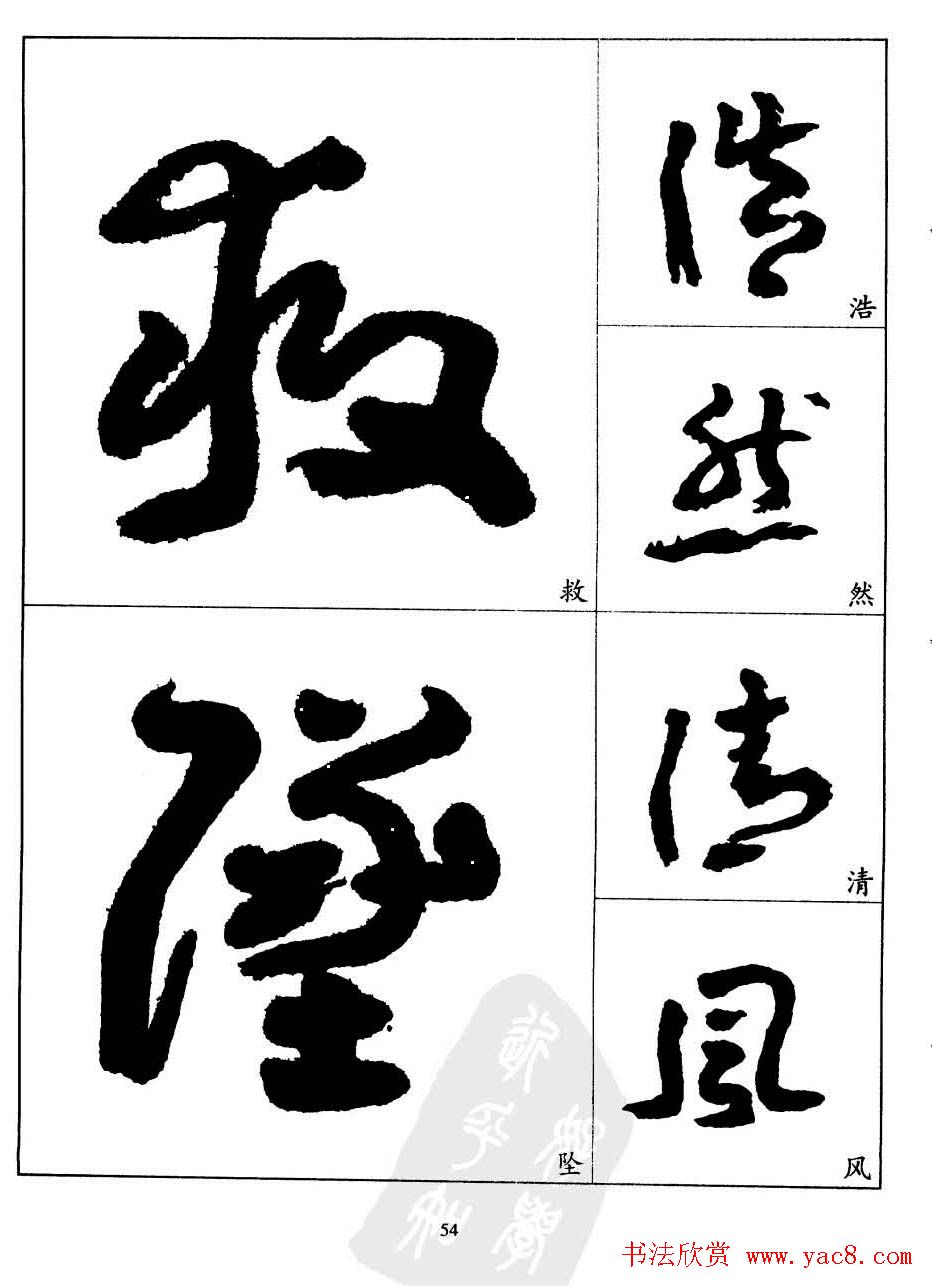 救
坠
浩
然
清
风
54
书法欣赏 www.yac8.com